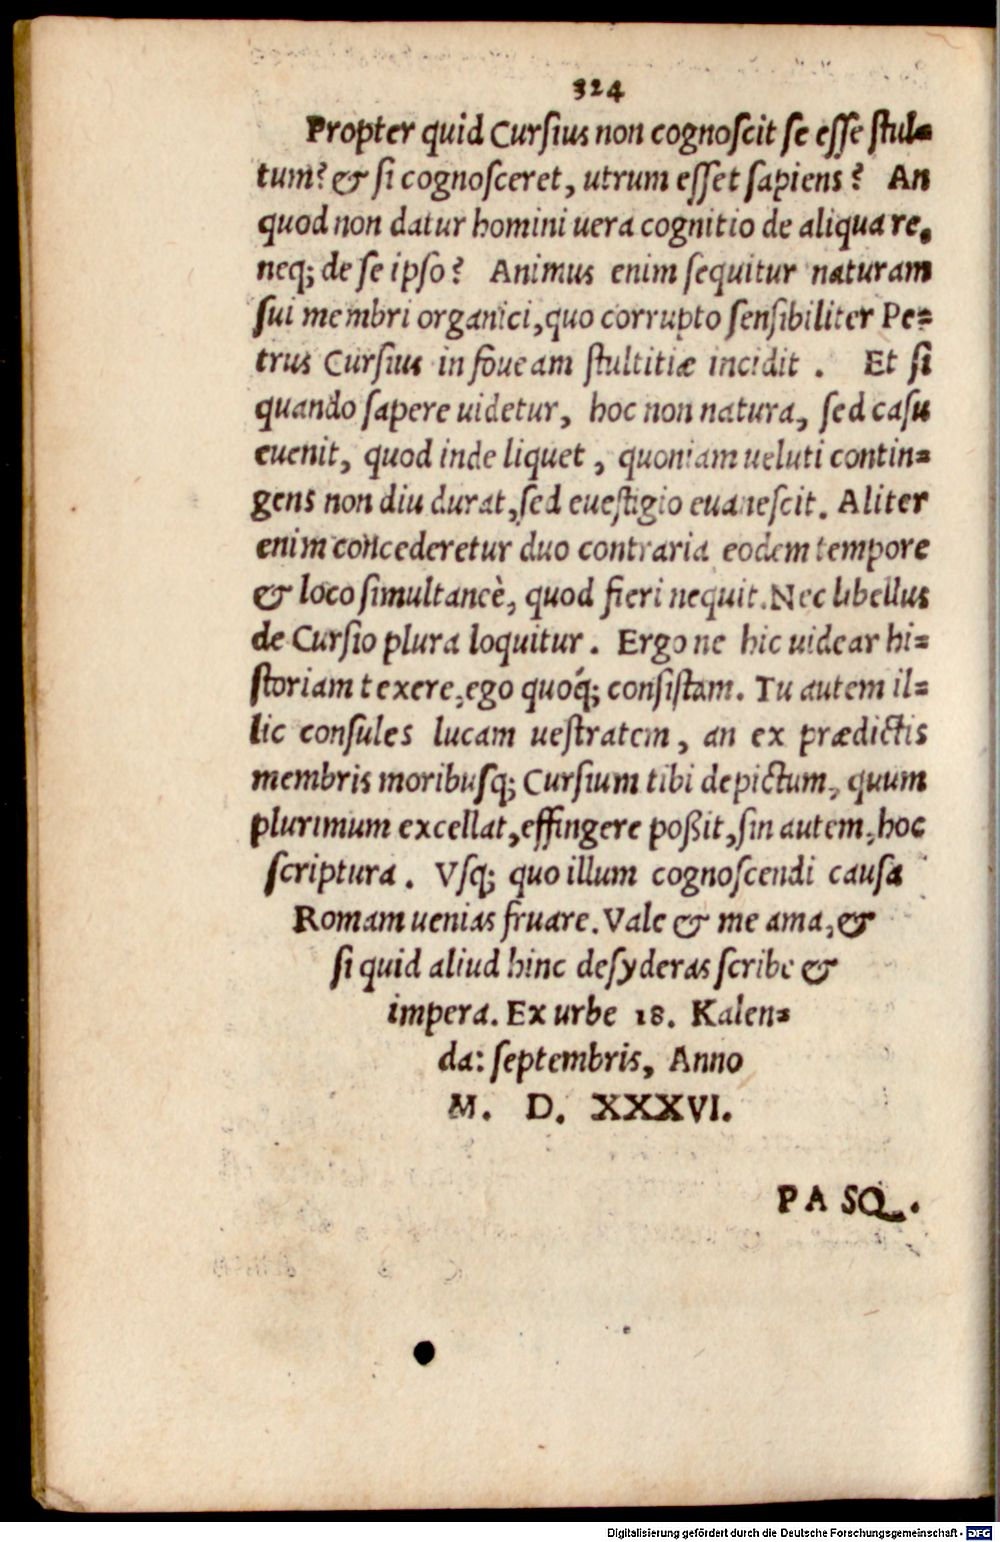 324
Propter quid Cursius non cognoscit se esse stul=
tum? & si cognosceret, utrum esset sapiens? An
quod non datur homini uera cognitio de aliqua re,
neq; de se ipso? Animus enim sequitur naturam
sui membri organici, quo corrupto sensibiliter Pe=
trus Cursius in foueam stultitiæ incidit. Et si
quando sapere uidetur, hoc non natura, sed casu
euenit, quod inde liquet, quoniam ueluti contin=
gens non diu durat, sed euestigio euanescit. Aliter
enim concederetur duo contraria eodem tempore
& loco simultaneè, quod fieri nequit. Nec libellus
de Cursio plura loquitur. Ergo ne hic uidear hi=
storiam texere, ego quoq́; consistam. Tu autem il=
lic consules lucam uestratem, an ex prædictis
membris moribusq; Cursium tibi depictum, quum
plurimum excellat, effingere poßit, sin autem, hoc
scriptura. Vsq; quo illum cognoscendi causa
Romam uenias fruare. Vale & me ama, &
si quid aliud hinc desyderas scribe &
impera. Ex urbe 18. Kalen=
da: septembris, Anno
M. D. XXXVI.
PASQ.
Digitalisierung gefördert durch die Deutsche Forschungsgemeinschaft - DFG